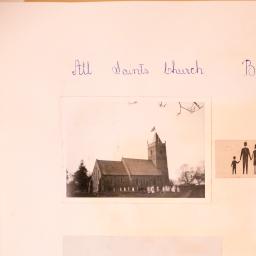 All Saints Church B